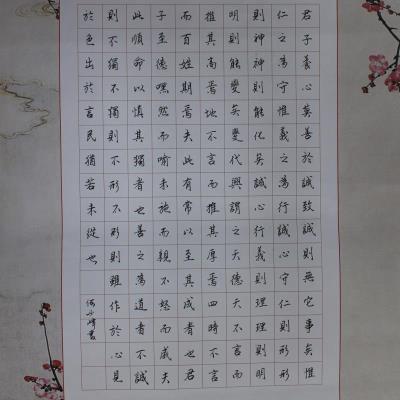 君子養心莫善於誠致誠則無它事矣惟
仁之為守惟義之為行誠心守仁則形形
則神神則能化矣誠心行義則理理則明
明則能變矣變代興謂之天德天不言而
推其高焉地不言而推其厚焉四時不言
而百姓期焉夫此有常以至其成者也君
子至德嘿然而喻未施而親不怒而威夫
此順命以慎其獨者也善之為道者不誠
則不獨不獨則不形不形則雖作於心見
於色出於言民猶若未從也